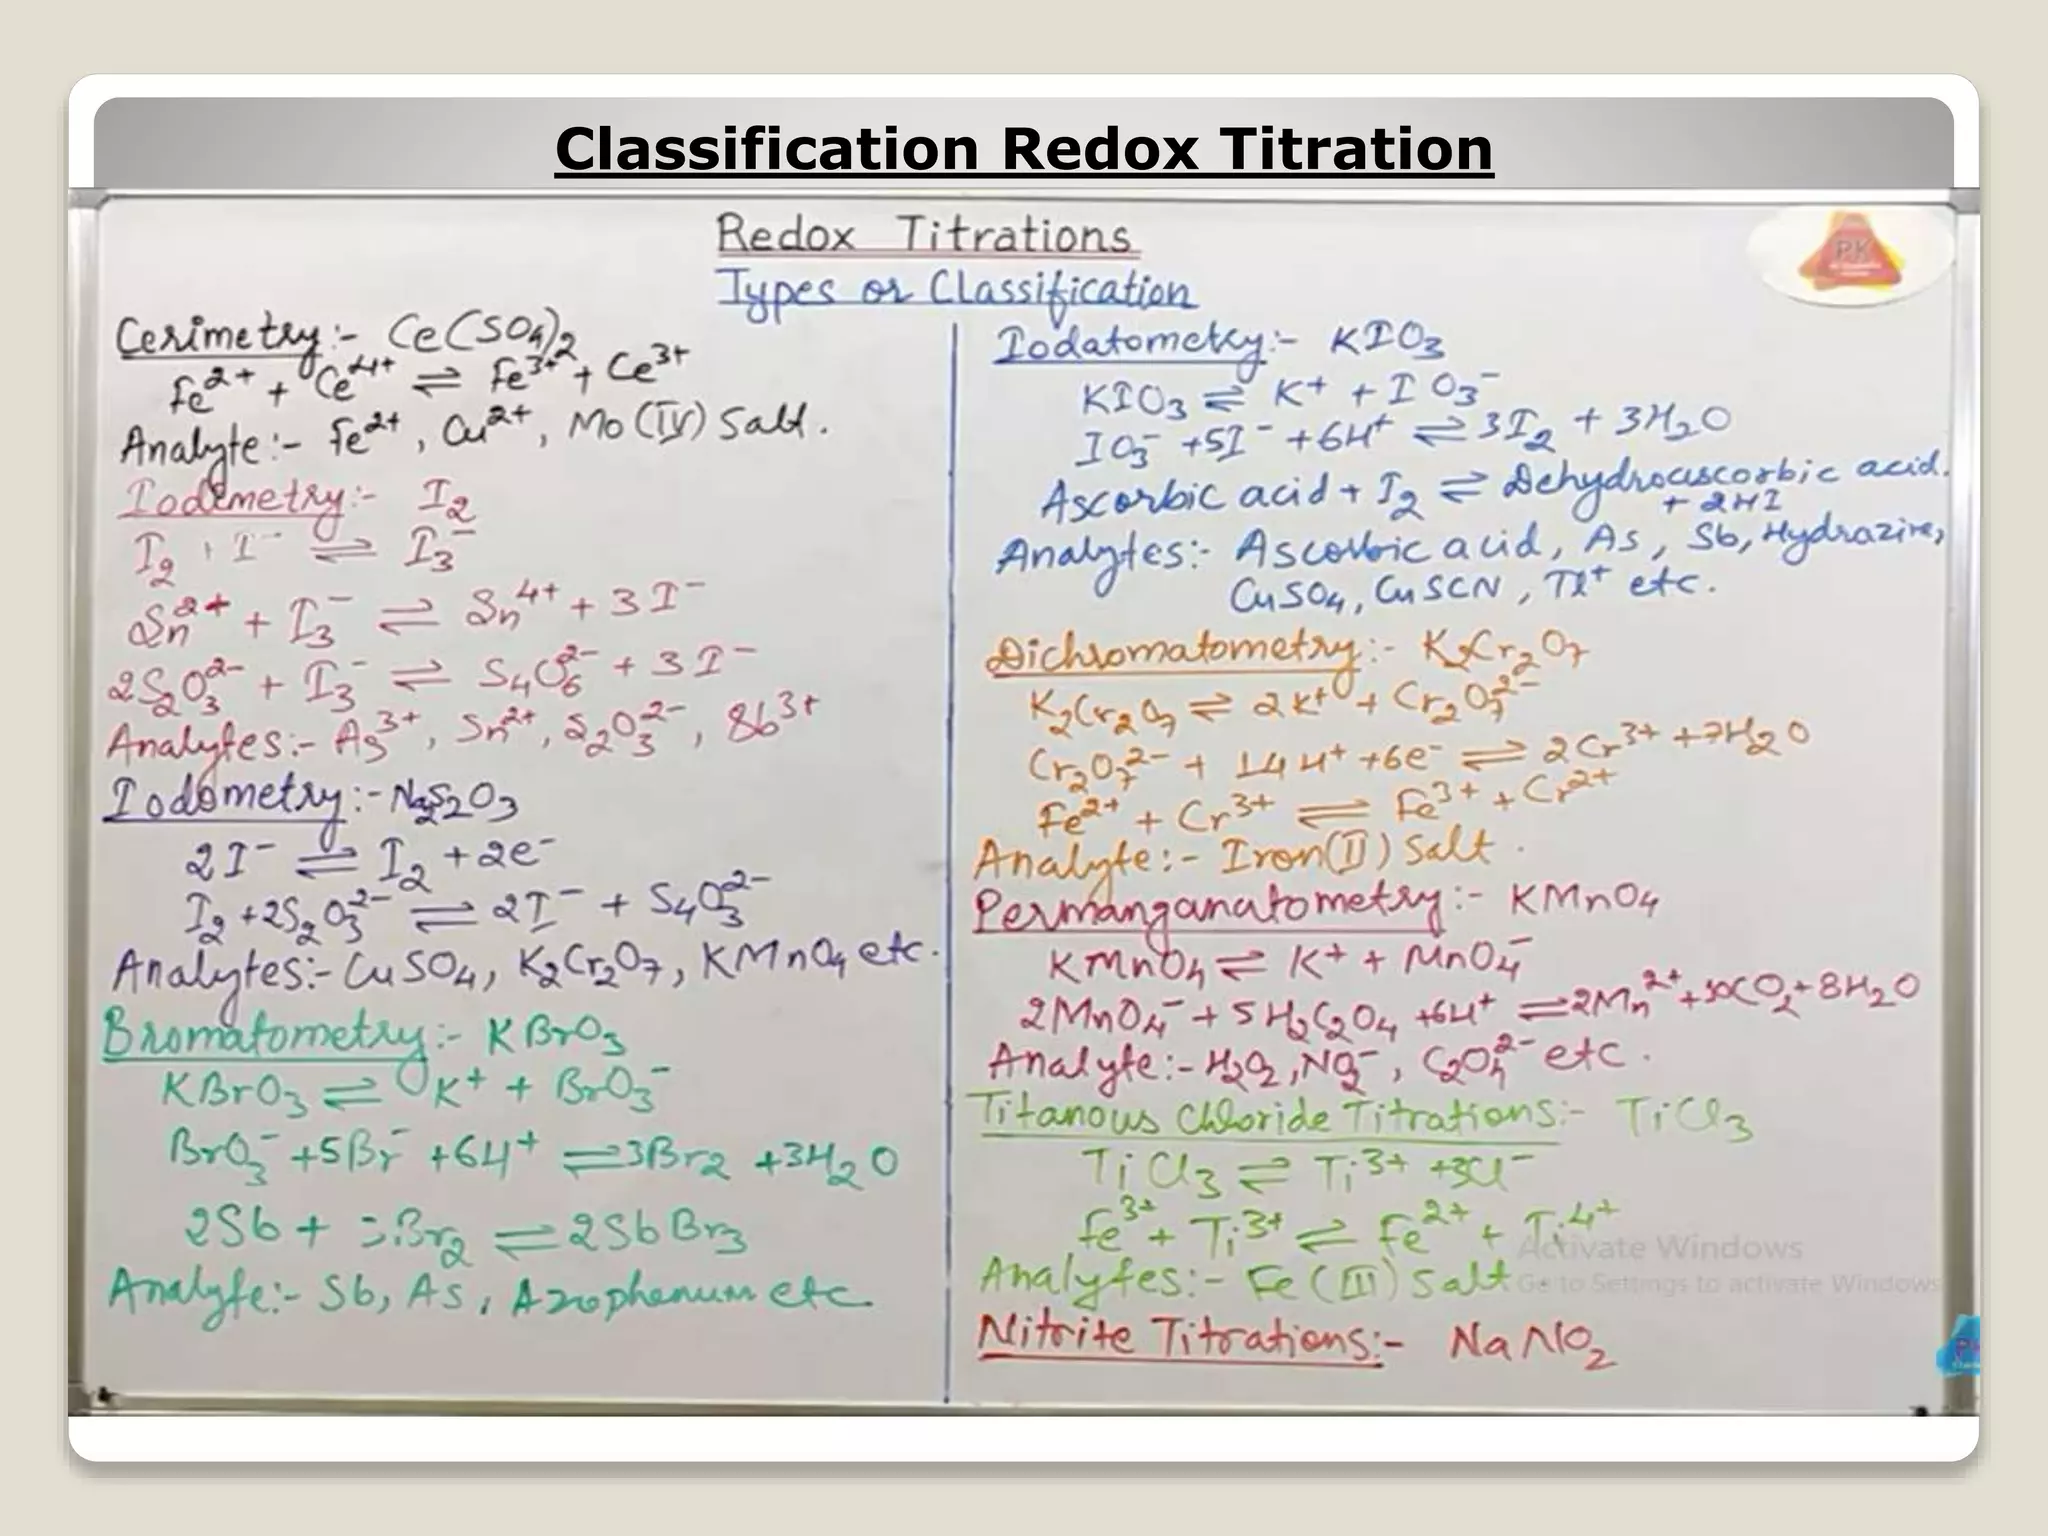 Classification Redox Titration
Redox Titrations
Types or Classification
Cerimetry:- Ce(SO4)2
Fe²⁺ + Ce⁴⁺ ⇌ Fe³⁺ + Ce³⁺
Analyte:- Fe²⁺, Cu²⁺, Mo(IV) Salt.
Iodimetry:- I₂
I₂ + I⁻ ⇌ I₃⁻
Sn²⁺ + I₃⁻ ⇌ Sn⁴⁺ + 3I⁻
2S₂O₃²⁻ + I₃⁻ ⇌ S₄O₆²⁻ + 3I⁻
Analytes:- As³⁺, Sn²⁺, S₂O₃²⁻, Sb³⁺
Iodometry:- Na₂S₂O₃
2I⁻ ⇌ I₂ + 2e⁻
I₂ + 2S₂O₃²⁻ ⇌ 2I⁻ + S₄O₃²⁻
Analytes:- CuSO₄, K₂Cr₂O₇, KMnO₄ etc.
Bromatometry:- KBrO₃
KBrO₃ ⇌ K⁺ + BrO₃⁻
BrO₃⁻ + 5Br⁻ + 6H⁺ ⇌ 3Br₂ + 3H₂O
2Sb + 3Br₂ ⇌ 2SbBr₃
Analyte:- Sb, As, Azophenum etc
Iodatometry:- KIO₃
KIO₃ ⇌ K⁺ + IO₃⁻
IO₃⁻ + 5I⁻ + 6H⁺ ⇌ 3I₂ + 3H₂O
Ascorbic acid + I₂ ⇌ Dehydroascorbic acid.
+ 2HI
Analytes:- Ascorbic acid, As, Sb, Hydrazine,
CuSO₄, CuSCN, Tl⁺ etc.
Dichromatometry:- K₂Cr₂O₇
K₂Cr₂O₇ ⇌ 2K⁺ + Cr₂O₇²⁻
Cr₂O₇²⁻ + 14H⁺ + 6e⁻ ⇌ 2Cr³⁺ + 7H₂O
Fe²⁺ + Cr³⁺ ⇌ Fe³⁺ + Cr²⁺
Analyte:- Iron(II) Salt.
Permanganatometry:- KMnO₄
KMnO₄ ⇌ K⁺ + MnO₄⁻
2MnO₄⁻ + 5H₂C₂O₄ + 6H⁺ ⇌ 2Mn²⁺ + 10CO₂ + 8H₂O
Analyte:- H₂O₂, NO₂⁻, C₂O₄²⁻ etc.
Titanous Chloride Titrations:- TiCl₃
TiCl₃ ⇌ Ti³⁺ + 3Cl⁻
Fe³⁺ + Ti³⁺ ⇌ Fe²⁺ + Ti⁴⁺
Analytes:- Fe(III) Salt
Nitrite Titrations:- NaNO₂
PK
Activate Windows
Go to Settings to activate Windows